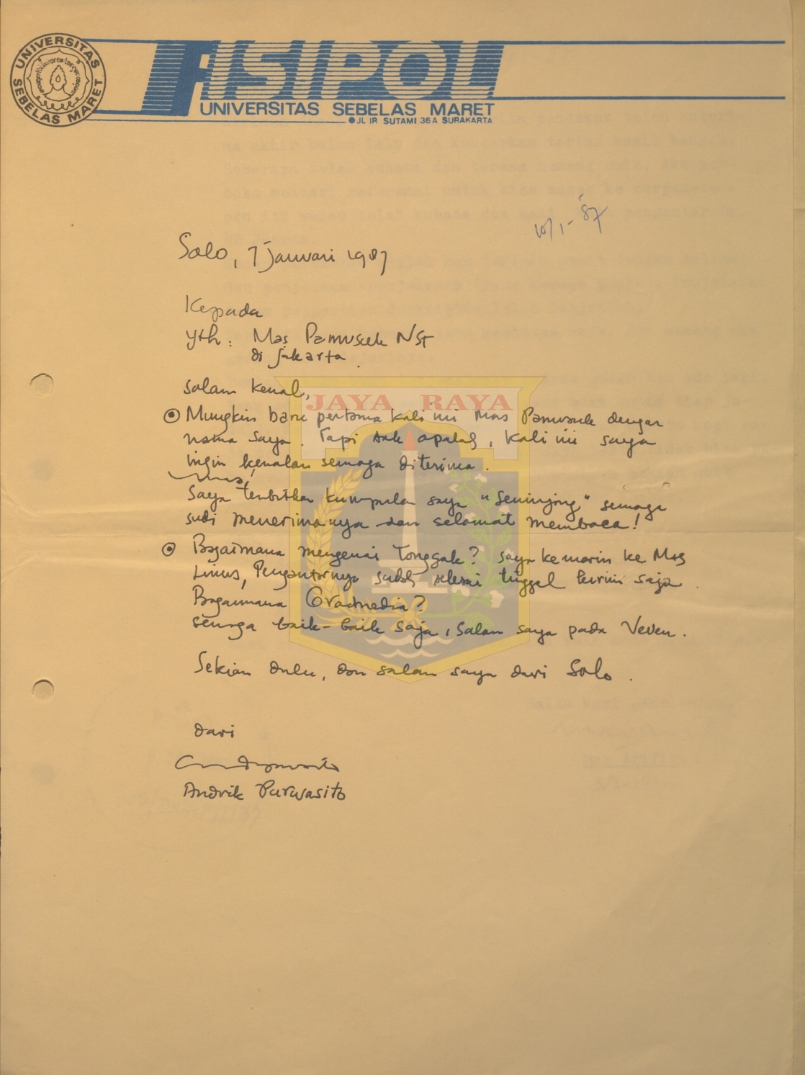 UNIVERSITAS SEBELAS MARET
FISIPOL
UNIVERSITAS SEBELAS MARET
JL IR SUTAMI 36A SURAKARTA
10/1-'87
Solo, 7 Januari 1987
Kepada
Yth: Mas Pamusuk NST
di Jakarta
Salam kenal,
JAYA RAYA
Mungkin baru pertama kali ini Mas Pamusuk dengar
nama saya. Tapi tak apalah, kali ini saya
ingin kenalan semoga diterima.
Mas,
Saya terbitkan kumpulan saya "Seninjong" semoga
sudi menerimanya dan selamat membaca!
Bagaimana mengenai Tonggak? saya kemarin ke Mas
Linus, Pengantarnya sudah selesai tinggal kirim saja.
Bagaimana Gramedia?
semoga baik-baik saja, salam saya pada Veven.
Sekian dulu, dan salam saya dari Solo.
dari
Andrik Purwasito